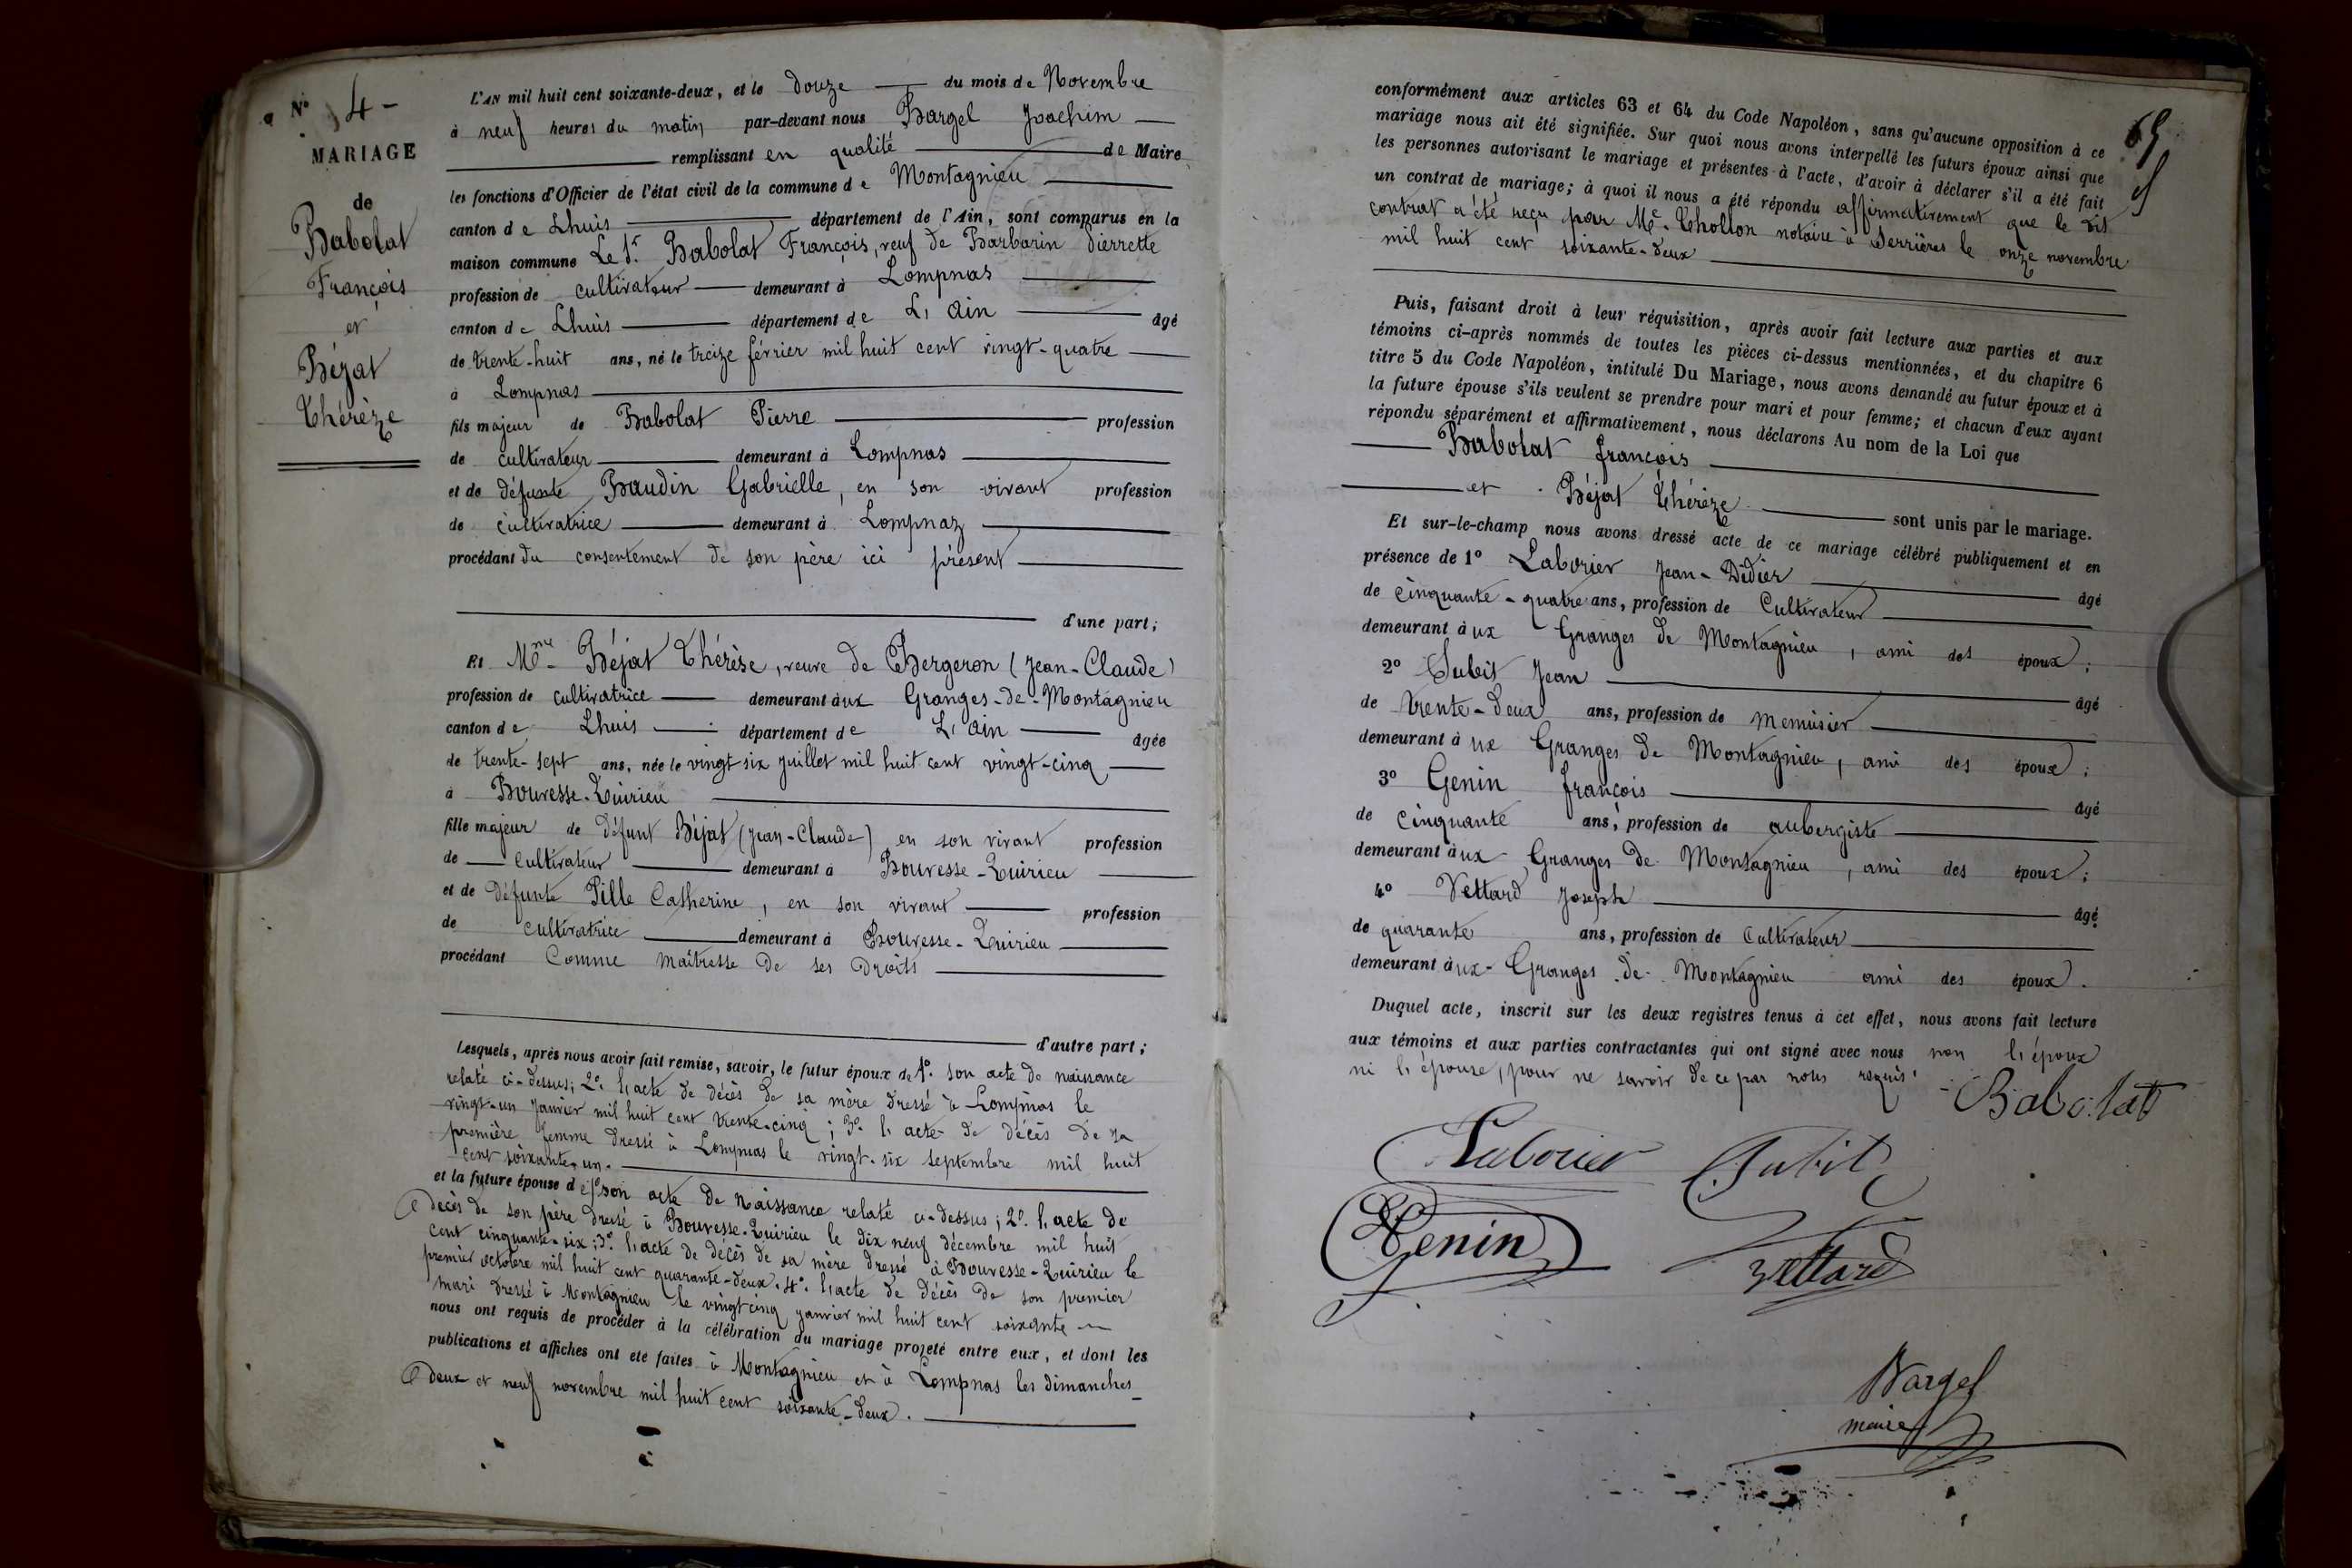 N° 4 -
MARIAGE
de
Babolat
François
et
Béjat
Thérèze
L'AN mil huit cent soixante-deux, et le douze du mois de Novembre
à neuf heures du matin par-devant nous Bargel Joachim
remplissant en qualité de Maire
les fonctions d'Officier de l'état civil de la commune de Montagnieu
canton de Lhuis département de l'Ain, sont comparus en la
maison commune Le Sr. Babolat François, veuf de Barbarin Pierrette
profession de cultivateur demeurant à Lompnas
canton de Lhuis département de L'Ain âgé
de trente-huit ans, né le treize février mil huit cent vingt-quatre
à Lompnas
fils majeur de Babolat Pierre profession
de cultivateur demeurant à Lompnas
et de défunte Baudin Gabrielle, en son vivant profession
de cultivatrice demeurant à Lompnaz
procédant du consentement de son père ici présent
d'une part;
Et Mme Béjat Thérèse, veuve de Bergeron (Jean-Claude)
profession de cultivatrice demeurant aux Granges-de-Montagnieu
canton de Lhuis département de L'Ain âgée
de trente-sept ans, née le vingt six juillet mil huit cent vingt-cinq
à Bouvesse-Quirieu
fille majeur de défunt Béjat (Jean-Claude) en son vivant profession
de cultivateur demeurant à Bouvesse-Quirieu
et de défunte Pille Catherine, en son vivant profession
de cultivatrice demeurant à Bouvesse-Quirieu
procédant Comme maîtresse de ses droits
d'autre part;
Lesquels, après nous avoir fait remise, savoir, le futur époux de 1°. son acte de naissance
relaté ci-dessus; 2°. l'acte de décès de sa mère dressé à Lompnas le
vingt-un janvier mil huit cent trente-cinq; 3°. l'acte de décès de sa
première femme dressé à Lompnas le vingt-six septembre mil huit
cent soixante-un.
et la future épouse de 1° son acte de naissance relaté ci-dessus; 2°. l'acte de
décès de son père dressé à Bouvesse-Quirieu le dix neuf décembre mil huit
cent cinquante-six; 3°. l'acte de décès de sa mère dressé à Bouvesse-Quirieu le
premier octobre mil huit cent quarante-deux. 4°. l'acte de décès de son premier
mari dressé à Montagnieu le vingt cinq janvier mil huit cent soixante
nous ont requis de procéder à la célébration du mariage projeté entre eux, et dont les
publications et affiches ont été faites à Montagnieu et à Lompnas les dimanches
deux et neuf novembre mil huit cent soixante-deux.
65
conformément aux articles 63 et 64 du Code Napoléon, sans qu'aucune opposition à ce
mariage nous ait été signifiée. Sur quoi nous avons interpellé les futurs époux ainsi que
les personnes autorisant le mariage et présentes à l'acte, d'avoir à déclarer s'il a été fait
un contrat de mariage; à quoi il nous a été répondu affirmativement que le dit
contrat a été reçu par Me. Thollon notaire à Serrières le onze novembre
mil huit cent soixante-deux
Puis, faisant droit à leur réquisition, après avoir fait lecture aux parties et aux
témoins ci-après nommés de toutes les pièces ci-dessus mentionnées, et du chapitre 6
titre 5 du Code Napoléon, intitulé Du Mariage, nous avons demandé au futur époux et à
la future épouse s'ils veulent se prendre pour mari et pour femme; et chacun d'eux ayant
répondu séparément et affirmativement, nous déclarons Au nom de la Loi que
Babolat François
et Béjat Thérèze sont unis par le mariage.
Et sur-le-champ nous avons dressé acte de ce mariage célébré publiquement et en
présence de 1° Laborier Jean-Didier âgé
de cinquante-quatre ans, profession de Cultivateur
demeurant aux Granges de Montagnieu, ami des époux;
2° Subit Jean âgé
de trente-deux ans, profession de menuisier
demeurant aux Granges de Montagnieu, ami des époux;
3° Genin François âgé
de cinquante ans, profession de aubergiste
demeurant aux Granges de Montagnieu, ami des époux;
4° Vettard Joseph âgé
de quarante ans, profession de Cultivateur
demeurant aux Granges de Montagnieu ami des époux.
Duquel acte, inscrit sur les deux registres tenus à cet effet, nous avons fait lecture
aux témoins et aux parties contractantes qui ont signé avec nous non l'époux
ni l'épouse, pour ne savoir de ce par nous requis.
Babolat
Laborier Subit
Genin
Vettard
Bargel
maire